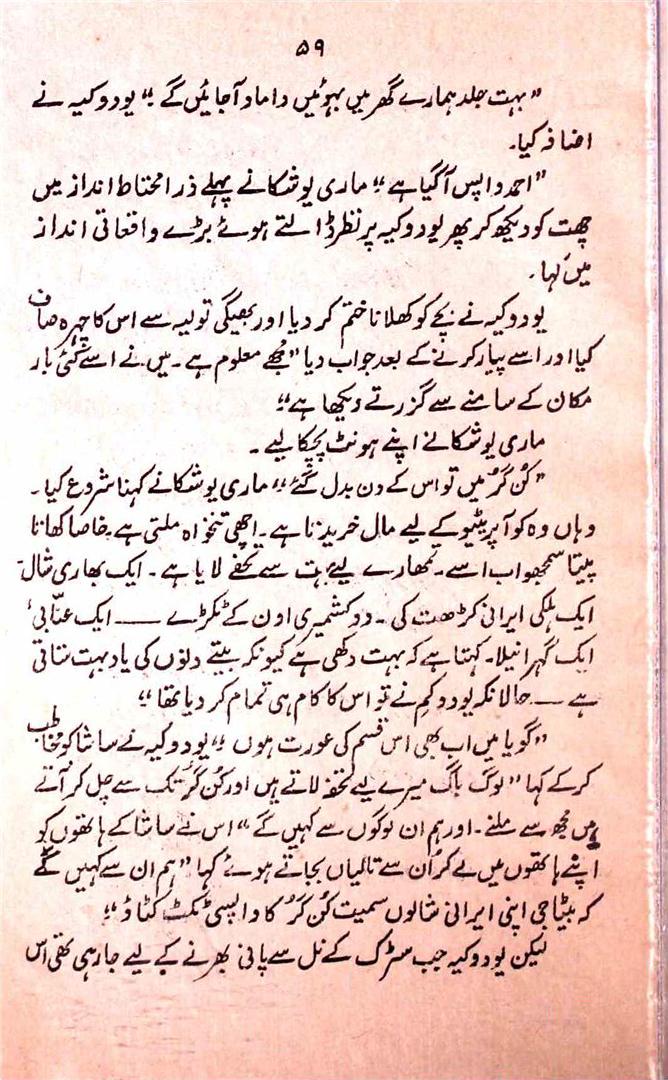 ۵۹
"بہت جلد ہمارے گھر میں بہوئیں داماد آجائیں گے۔" یودوکیہ نے
اضافہ کیا۔
"احمد واپس آگیا ہے۔" ماری یوشکا نے پہلے ذرا محتاط انداز میں
چھت کو دیکھ کر پھر یودوکیہ پر نظر ڈالتے ہوئے بڑے واقعاتی انداز
میں کہا۔
یودوکیہ نے بچے کو کھلانا ختم کر دیا اور بھیگی تولیہ سے اس کا چہرہ صاف
کیا اور اسے پیار کرنے کے بعد جواب دیا "مجھے معلوم ہے۔ میں نے اسے کئی بار
مکان کے سامنے سے گزرتے دیکھا ہے۔"
ماری یوشکا نے اپنے ہونٹ پچکا لیے۔
"کُن گُر میں تو اس کے دن بدل گئے۔" ماری یوشکا نے کہنا شروع کیا۔
وہاں وہ کوآپریٹیو کے لیے مال خریدتا ہے۔ اچھی تنخواہ ملتی ہے۔ خاصا کھاتا
پیتا سمجھو اب اسے۔ تمھارے لیے بہت سے تحفے لایا ہے۔ ایک بھاری شال۔
ایک ہلکی ایرانی کڑھت کی۔ دو کشمیری اون کے ٹکڑے —— ایک عنّابی،
ایک گہرا نیلا۔ کہتا ہے کہ بہت دکھی ہے کیونکہ بیتے دنوں کی یاد بہت ستاتی
ہے — حالانکہ یودوکم نے تو اس کا کام ہی تمام کر دیا تھا۔"
"گویا میں اب بھی اس قسم کی عورت ہوں۔" یودوکیہ نے ساشا کو مخاطب
کرکے کہا "لوگ باگ میرے لیے تحفہ لاتے ہیں اور کُن گُر تک سے چل کر آتے
ہیں مجھ سے ملنے۔ اور ہم ان لوگوں سے کہیں گے" اس نے ساشا کے ہاتھوں کو
اپنے ہاتھوں میں لے کر اُن سے تالیاں بجاتے ہوئے کہا "ہم ان سے کہیں گے
کہ بیٹا جی اپنی ایرانی شالوں سمیت کُن گُر کا واپسی ٹکٹ کٹاؤ۔"
لیکن یودوکیہ جب سڑک کے نل سے پانی بھرنے کے لیے جا رہی تھی اس